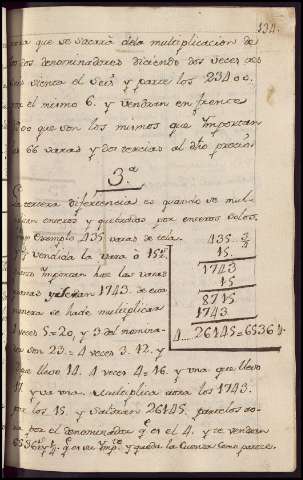 134.
que se sacará dela multiplicacion de
dos denominadores diciendo dos veces
el Seis y parte los 234 oc.
el mismo 6. y vendran en frente
que son los mismos que Importan
66 varas y dos tercias al dho precio
3.ª
tercera diferencia es quando se mul-
enteros y quebrados por enteros solos.
exemplo. 435 varas de tela.
y vendida la vara á 15
Importan las varas
1743. de esta
manera se hade multiplicar
4 veces 5=20, y 3 del nomina-
son 23. 4 veces 3. 12, y
llevo 14. 4 veces 4=16. y una que llevo
17. y va una. Multiplica aora los 1743.
por los 15. y Saldran 26145. partelos
por el denominador q.e es el 4. y te vendran
6536 1/4 y queda la Cuenta como parece.
435.. 3/4
15.
1743
15
8715
1743.
4.... 26145=6536 1/4